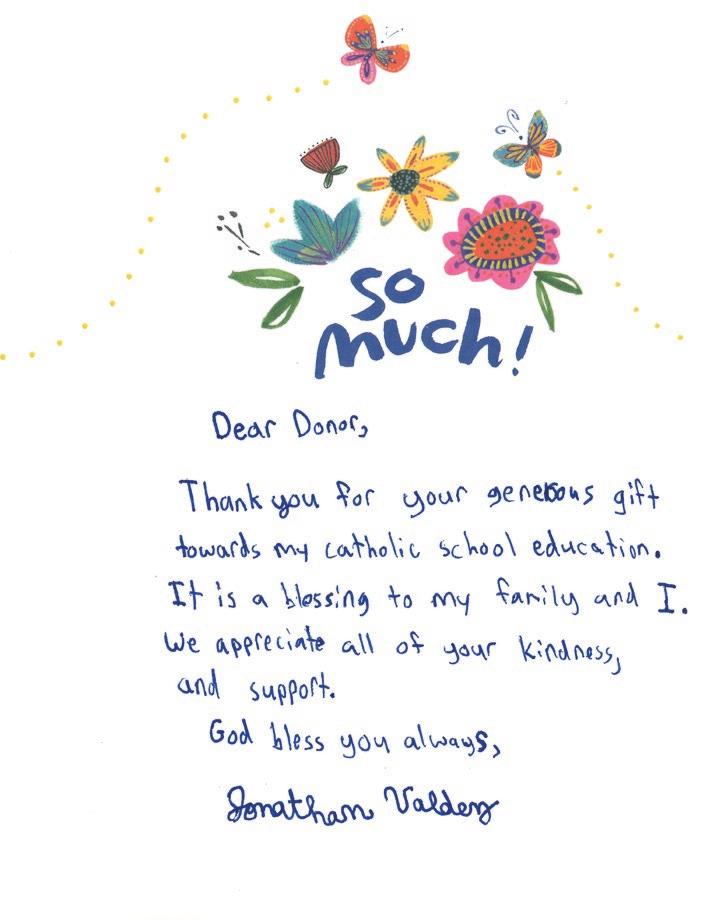 so
much!
Dear Donor,
Thank you for your generous gift
towards my catholic school education.
It is a blessing to my family and I.
We appreciate all of your kindness,
and support.
God bless you always,
Jonathan Valdez